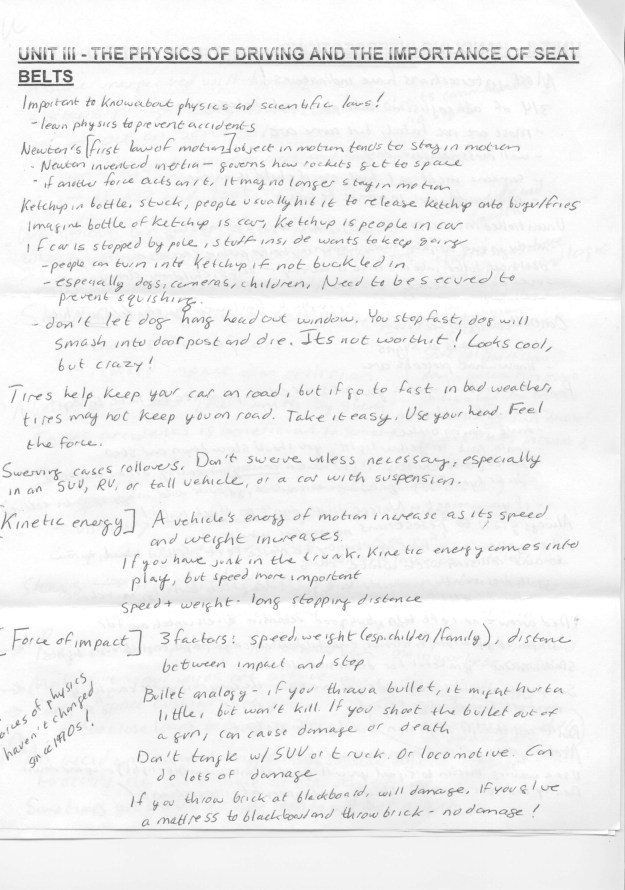 UNIT III - THE PHYSICS OF DRIVING AND THE IMPORTANCE OF SEAT
BELTS
Important to know about physics and scientific laws!
- learn physics to prevent accidents
Newton's [first law of motion] object in motion tends to stay in motion
- Newton invented inertia - governs how rockets get to space
- if another force acts on it, it may no longer stay in motion
Ketchup in bottle, stuck, people usually hit it to release ketchup onto burger/fries
Imagine bottle of ketchup is car, ketchup is people in car
If car is stopped by pole, stuff inside wants to keep going
- people can turn into ketchup if not buckled in
- especially dogs, cameras, children, Need to be secured to
prevent squishing.
- don't let dog hang head out window. You stop fast, dog will
smash into door post and die. It's not worth it! Looks cool,
but crazy!
Tires help keep your car on road, but if go to fast in bad weather,
tires may not keep you on road. Take it easy. Use your head. Feel
the force.
Swerving cases rollovers. Don't swerve unless necessary, especially
in an SUV, RV, or tall vehicle, or a car with suspension.
[Kinetic energy] A vehicle's energy of motion increase as its speed
and weight increases.
If you have junk in the trunk, kinetic energy comes into
play, but speed more important
Speed + weight - long stopping distance
[Force of impact] 3 factors: speed, weight (esp. children/family), distance
between impact and stop
Forces of physics
haven't changed
since 1980s!
Bullet analogy - if you throw a bullet, it might hurt a
little, but won't kill. If you shoot the bullet out of
a gun, can cause damage or death
Don't tangle w/ SUV or truck. Or locomotive. Can
do lots of damage
If you throw brick at blackboard, will damage. If you glue
a mattress to blackboard and throw brick - no damage!